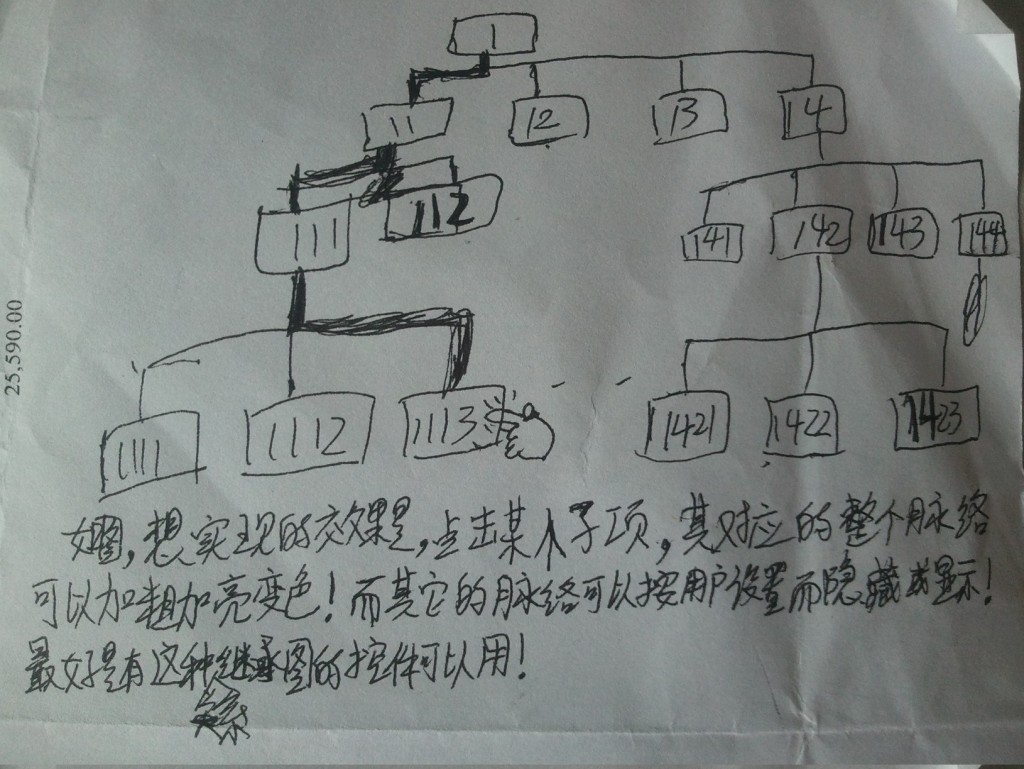 1
11 12 13 14
111 112 141 142 143 144
1111 1112 1113 1421 1422 1423
25,590.00
如图，想实现的效果是，点击某个子项，其对应的整个脉络
可以加粗加亮变色！而其它的脉络可以按用户设置而隐藏或显示！
最好是有这种继承图的控件可以用！
关系